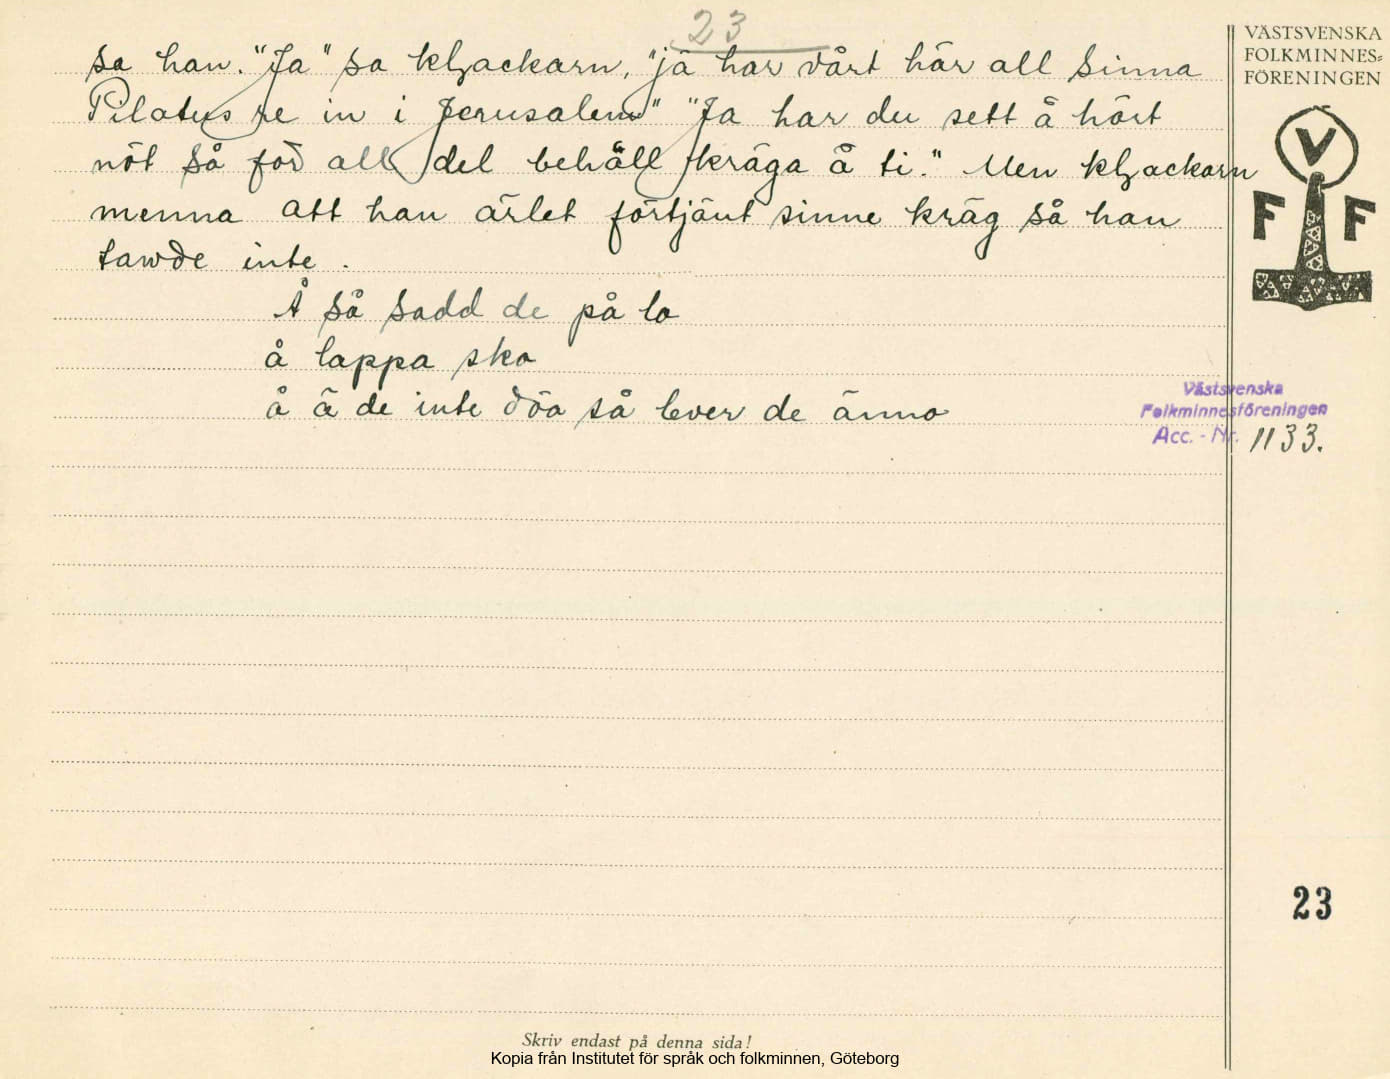 23
VÄSTSVENSKA
FOLKMINNES=
FÖRENINGEN
sa han. "Ja" sa kljackarn, "jä har vårt här all sinna
Pilatus re in i Jerusalem" "Ja har du sett å hört
nöt så för all del behåll kräga å ti." Men kljackarn
menna att han ärlet förtjänt sinne kräg så han
tawde inte.
Å så sadd de på lo
å lappa sko
å ä de inte döa så lever de änno
V
F F
Västsvenska
Folkminnesföreningen
Acc. - Nr. 1133.
23
Skriv endast på denna sida!
Kopia från Institutet för språk och folkminnen, Göteborg